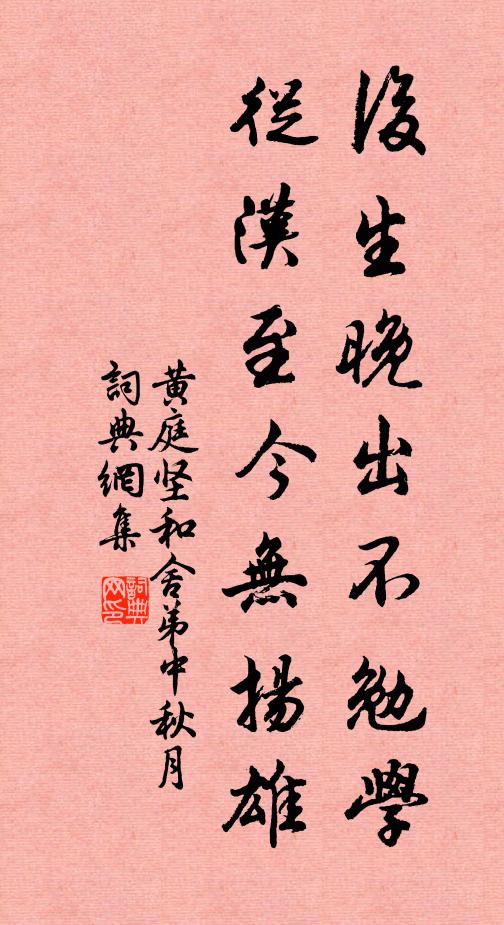 後生晚出不勉學
從漢至今無揚雄
黄庭坚和舍弟中秋月
詞典網集
詞典網印